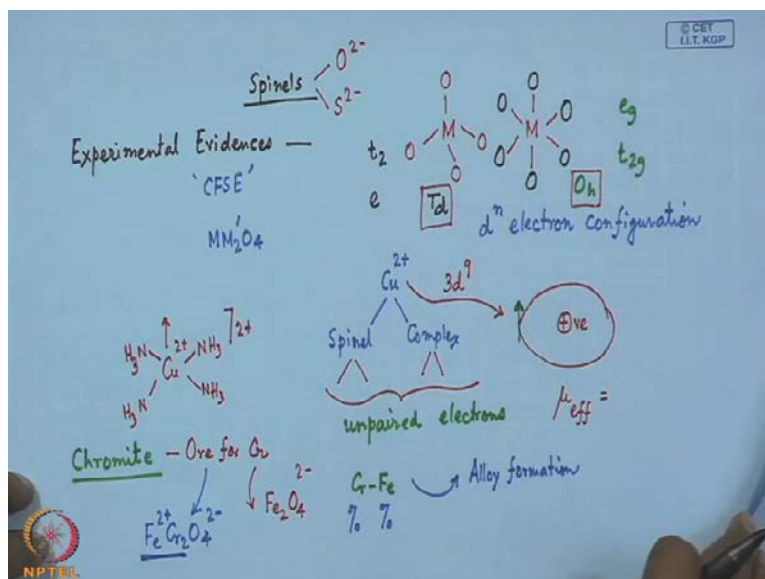 © CET
I.I.T. KGP
Spinels
O²⁻
S²⁻
Experimental Evidences —
'CFSE'
MM'₂O₄
O
O M O
O
t₂
e
Td
O
O O
M
O O
O
eg
t₂g
Oh
dⁿ electron configuration
Cu²⁺
3d⁹
Spinel Complex
⊕ve
unpaired electrons
μeff =
H₃N NH₃ ]²⁺
Cu²⁺
H₃N NH₃
Chromite – Ore for Cr
Fe²⁺Cr₂O₄²⁻
Fe₂O₄²⁻
Cr–Fe
% %
Alloy formation
NPTEL